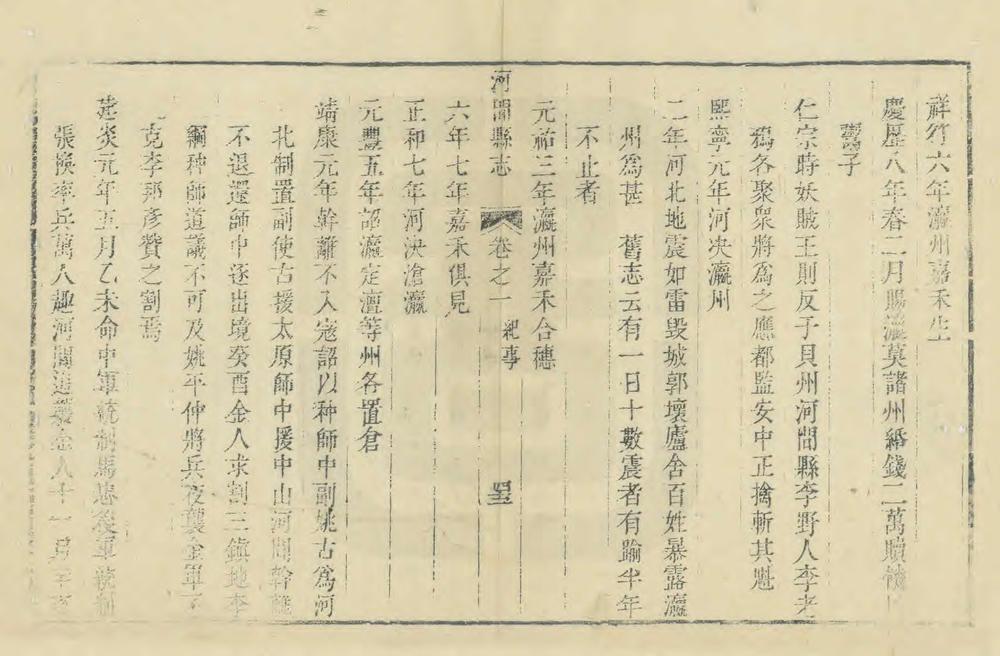 祥符六年瀛州嘉禾生
慶歷八年春二月賜瀛莫諸州緡錢二萬贖被
鬻子
仁宗時妖賊王則反于貝州河間縣李野人李老
鴉各聚衆將為之應都監安中正擒斬其魁
熙寧元年河决瀛州
二年河北地震如雷毁城郭壞廬舍百姓暴露瀛
州為甚 舊志云有一日十數震者有踰半年
不止者
元祐三年瀛州嘉禾合穗
河間縣志 卷之一 紀事 四五
六年七年嘉禾俱見
正和七年河决滄瀛
元豐五年詔瀛定澶等州各置倉
靖康元年幹離不入寇詔以种師中副姚古為河
北制置副使古援太原師中援中山河間幹離
不退還師中逐出境癸酉金人求割三鎮地李
綱种師道議不可及姚平仲將兵夜襲金軍不
克李邦彥贊之割焉
建炎元年五月乙未命中軍統制馬忠後軍統制
張換率兵萬人趣河間追襲金人十一月